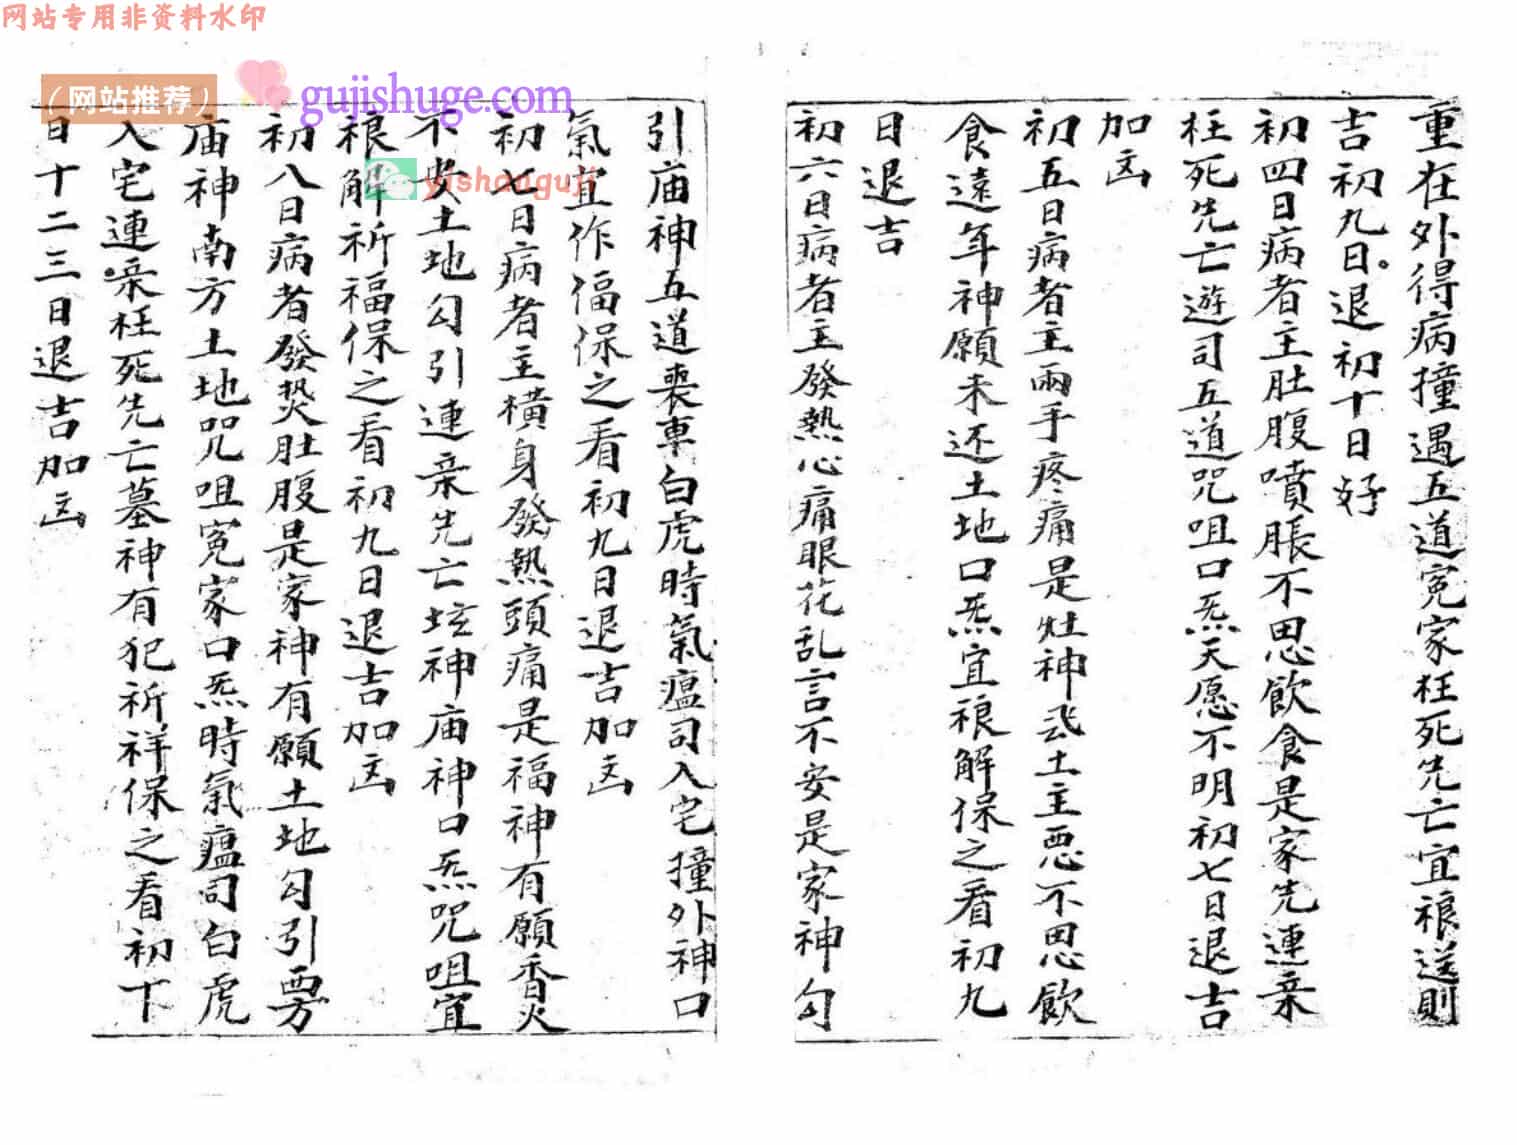 网站专用非资料水印
（网站推荐）
gujishuge.com
yishanguji
重在外得病撞遇五道冤家枉死先亡宜禳送則
吉初九日退初十日好
初四日病者主肚腹噴脹不思飲食是家先連亲
枉死先亡遊司五道咒咀口炁天愿不明初七日退吉
加凶
初五日病者主兩手疼痛是灶神土主恶不思飲
食遠年神願未还土地口炁宜禳解保之看初九
日退吉
初六日病者主發熱心痛眼花乱言不安是家神勾
引庙神五道喪車白虎時氣瘟司入宅撞外神口
氣宜作福保之看初九日退吉加凶
初七日病者主横身發熱頭痛是福神有願香火
不安土地勾引連亲先亡坟神庙神口炁咒咀宜
禳解祈福保之看初九日退吉加凶
初八日病者發熱肚腹是家神有願土地勾引西方
庙神南方土地咒咀冤家口炁時氣瘟司白虎
入宅連亲枉死先亡墓神有犯祈祥保之看初下
日十二三日退吉加凶